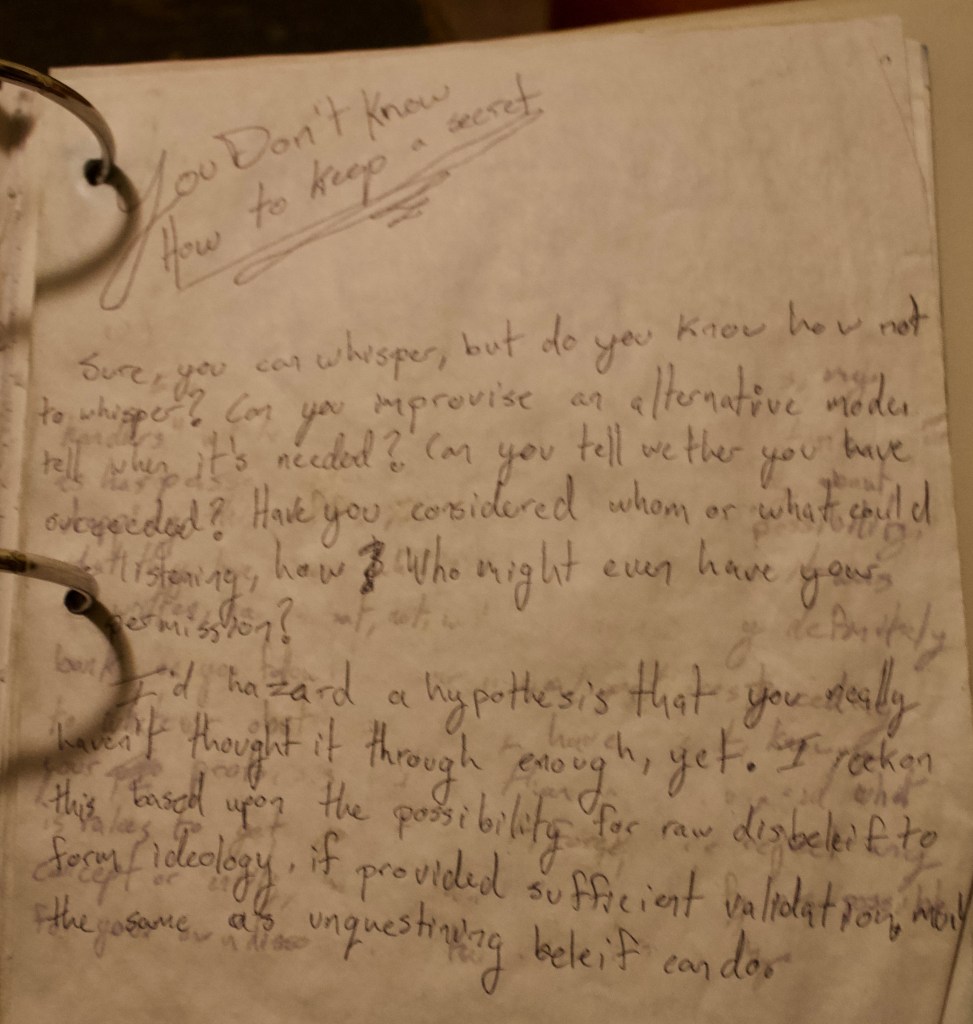 You Don't Know
How to keep a secret
Sure, you can whisper, but do you know how not
to whisper? Can you improvise an alternative mode,
tell when it's needed? Can you tell wether you have
succeeded? Have you considered whom or what could
listening, how Who might even have your
permission?
I'd hazard a hypothesis that you really
haven't thought it through enough, yet. I reckon
this based upon the possibility for raw disbeleif to
form ideology, if provided sufficient validation, much
the same as unquestining beleif can do